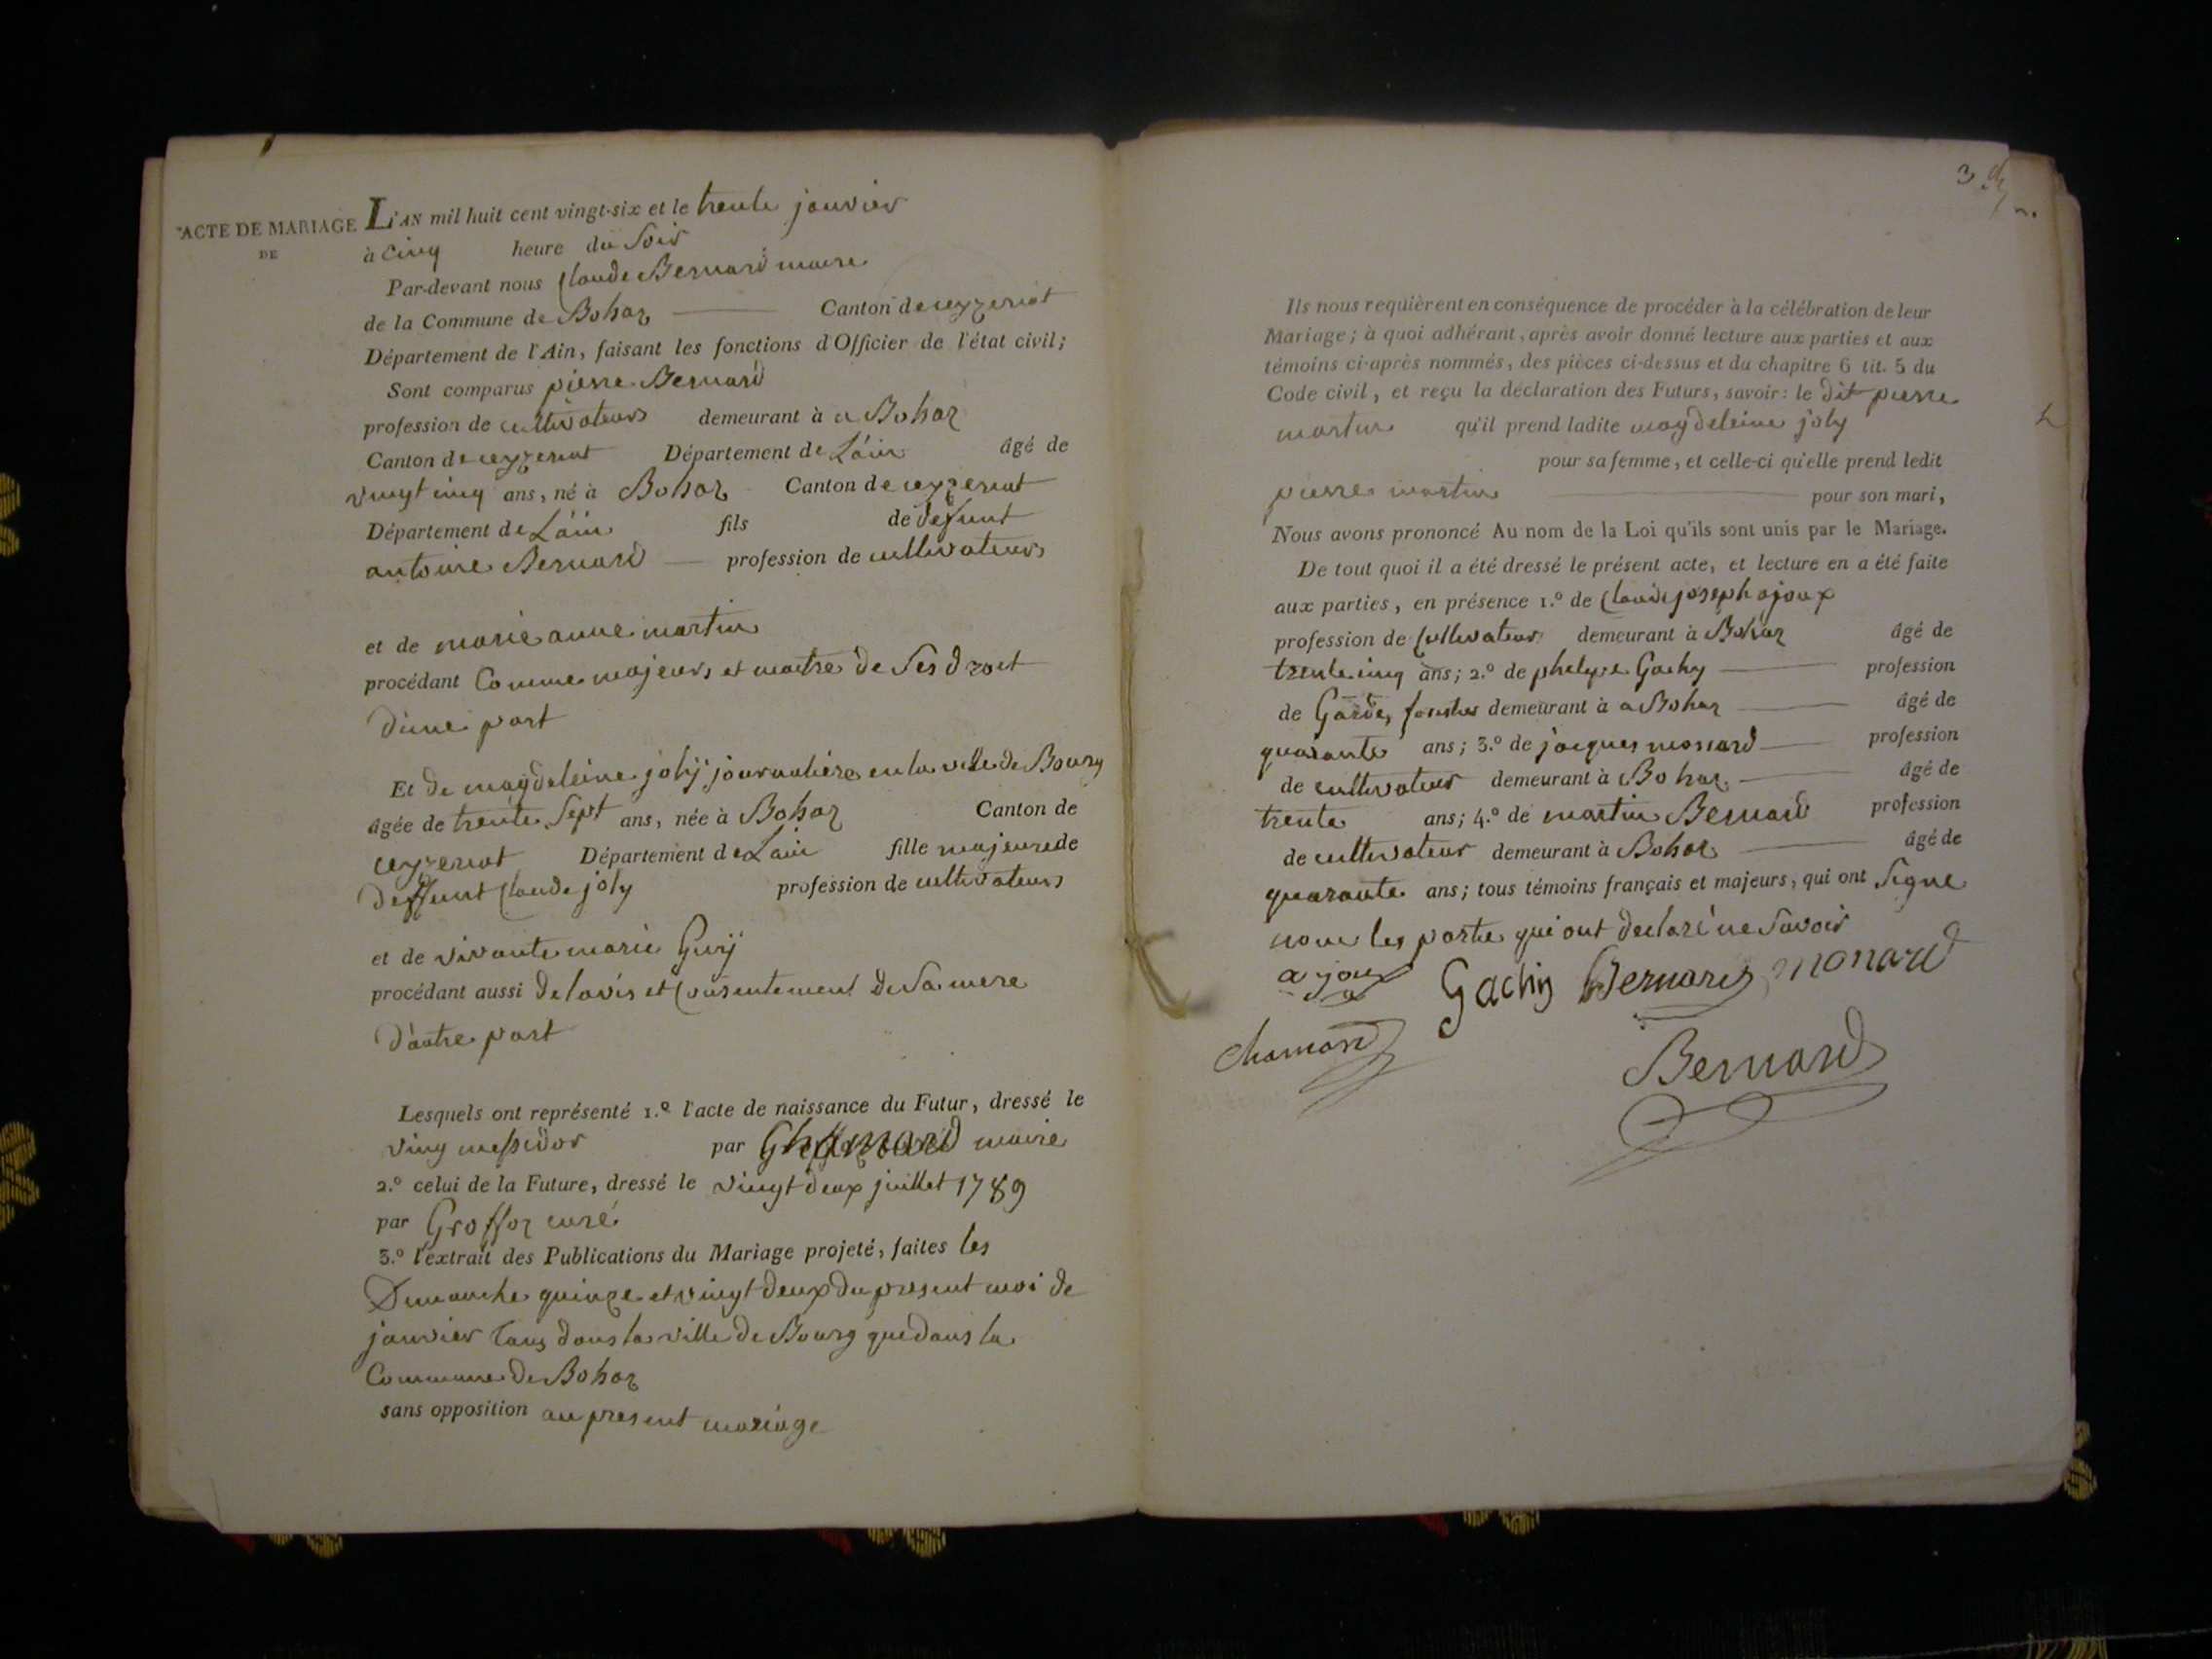 ACTE DE MARIAGE
DE
L'AN mil huit cent vingt-six et le trente janvier
à cinq heure du Soir
Par-devant nous Claude Bernard maire
de la Commune de Bohaz Canton de ceyzeriat
Département de l'Ain, faisant les fonctions d'Officier de l'état civil;
Sont comparus pierre Bernard
profession de cultivateur demeurant à a Bohaz
Canton de ceyzeriat Département de L'ain âgé de
vingt cinq ans, né à Bohaz Canton de ceyzeriat
Département de L'ain fils de défunt
antoine Bernard profession de cultivateur
et de marie anne martin
procédant Comme majeur, et maitre de Ses droit
d'une part
Et de magdeleine joly journaliere en la ville de Bourg
âgée de trente Sept ans, née à Bohaz Canton de
ceyzeriat Département de L'ain fille majeure de
deffunt Claude joly profession de cultivateur
et de vivante marie Guy
procédant aussi de lavis et Consentement de Sa mere
d'autre part
Lesquels ont représenté 1.º l'acte de naissance du Futur, dressé le
ving messidor par maire
2.º celui de la Future, dressé le vingt deux juillet 1789
par Grossoz curé
3.º l'extrait des Publications du Mariage projeté, faites les
Dimanche quinze et vingt deux du present moi de
janvier tans dans la ville de Bourg que dans la
Commune de Bohaz
sans opposition au present mariage
3
Ils nous requièrent en conséquence de procéder à la célébration de leur
Mariage; à quoi adhérant, après avoir donné lecture aux parties et aux
témoins ci-après nommés, des pièces ci-dessus et du chapitre 6 tit. 5 du
Code civil, et reçu la déclaration des Futurs, savoir: le dit pierre
martin qu'il prend ladite magdeleine joly
pour sa femme, et celle-ci qu'elle prend ledit
pierre martin pour son mari,
Nous avons prononcé Au nom de la Loi qu'ils sont unis par le Mariage.
De tout quoi il a été dressé le présent acte, et lecture en a été faite
aux parties, en présence 1.º de Claude joseph ajoux
profession de Cultivateur demeurant à Bohaz âgé de
trente cinq ans; 2.º de phelipe Gachy profession
de Garde forestier demeurant à a Bohaz âgé de
quarante ans; 3.º de jacques monard profession
de cultivateur demeurant à Bohaz âgé de
trente ans; 4.º de martin Bernard profession
de cultivateur demeurant à Bohaz âgé de
quarante ans; tous témoins français et majeurs, qui ont Signe
non les partie qui ont declaré ne Savoir
ajoux Gachy Bernard monard
chamard
Bernard